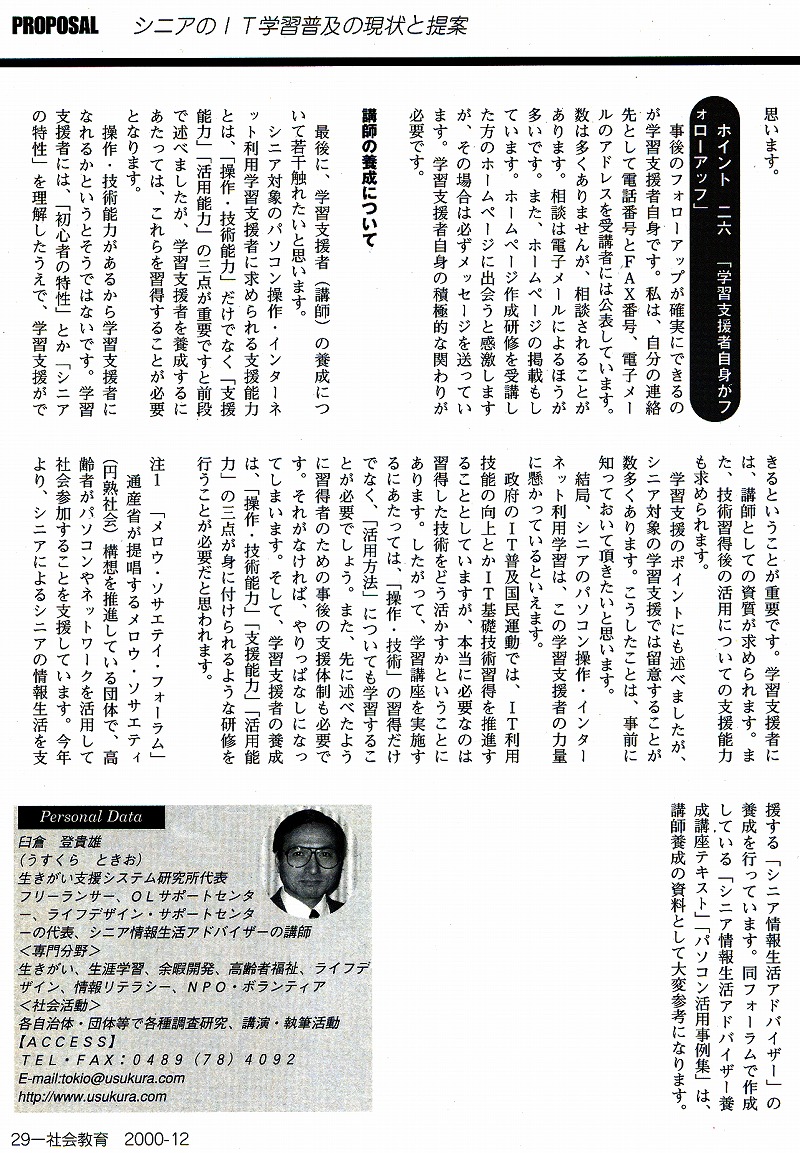 PROPOSAL シニアのＩＴ学習普及の現状と提案
思います。
ホイント　二六　「学習支援者自身がフ
ォローアップ」
　事後のフォローアップが確実にできるの
が学習支援者自身です。私は、自分の連絡
先として電話番号とＦＡＸ番号、電子メー
ルのアドレスを受講者には公表しています。
数は多くありませんが、相談されることが
あります。相談は電子メールによるほうが
多いです。また、ホームページの掲載もし
ています。ホームページ作成研修を受講し
た方のホームページに出会うと感激します
が、その場合は必ずメッセージを送ってい
ます。学習支援者自身の積極的な関わりが
必要です。
講師の養成について
　最後に、学習支援者（講師）の養成につ
いて若干触れたいと思います。
　シニア対象のパソコン操作・インターネ
ット利用学習支援者に求められる支援能力
とは、「操作・技術能力」だけでなく「支援
能力」「活用能力」の三点が重要ですと前段
で述べましたが、学習支援者を養成するに
あたっては、これらを習得することが必要
となります。
　操作・技術能力があるから学習支援者に
なれるかというとそうではないです。学習
支援者には、「初心者の特性」とか「シニア
の特性」を理解したうえで、学習支援がで
きるということが重要です。学習支援者に
は、講師としての資質が求められます。ま
た、技術習得後の活用についての支援能力
も求められます。
　学習支援のポイントにも述べましたが、
シニア対象の学習支援では留意することが
数多くあります。こうしたことは、事前に
知っておいて頂きたいと思います。
　結局、シニアのパソコン操作・インター
ネット利用学習は、この学習支援者の力量
に懸かっているといえます。
　政府のＩＴ普及国民運動では、ＩＴ利用
技能の向上とかＩＴ基礎技術習得を推進す
ることとしていますが、本当に必要なのは
習得した技術をどう活かすかということに
あります。したがって、学習講座を実施す
るにあたっては、「操作・技術」の習得だけ
でなく、「活用方法」についても学習するこ
とが必要でしょう。また、先に述べたよう
に習得者のための事後の支援体制も必要で
す。それがなければ、やりっぱなしになっ
てしまいます。そして、学習支援者の養成
は、「操作・技術能力」「支援能力」「活用能
力」の三点が身に付けられるような研修を
行うことが必要だと思われます。
注１　「メロウ・ソサエテイ・フォーラム」
　通産省が提唱するメロウ・ソサエティ
（円熟社会）構想を推進している団体で、高
齢者がパソコンやネットワークを活用して
社会参加することを支援しています。今年
より、シニアによるシニアの情報生活を支
援する「シニア情報生活アドバイザー」の
養成を行っています。同フォーラムで作成
している「シニア情報生活アドバイザー養
成講座テキスト」「パソコン活用事例集」は、
講師養成の資料として大変参考になります。
Personal Data
臼倉　登貴雄
（うすくら　ときお）
生きがい支援システム研究所代表
フリーランサー、ＯＬサポートセンタ
ー、ライフデザイン・サポートセンタ
ーの代表、シニア情報生活アドバイザーの講師
＜専門分野＞
生きがい、生涯学習、余暇開発、高齢者福祉、ライフデ
ザイン、情報リテラシー、ＮＰＯ・ボランティア
＜社会活動＞
各自治体・団体等で各種調査研究、講演・執筆活動
【ＡＣＣＥＳＳ】
ＴＥＬ・ＦＡＸ：０４８９（７８）４０９２
E-mail:tokio@usukura.com
http://www.usukura.com
29ー社会教育　2000-12